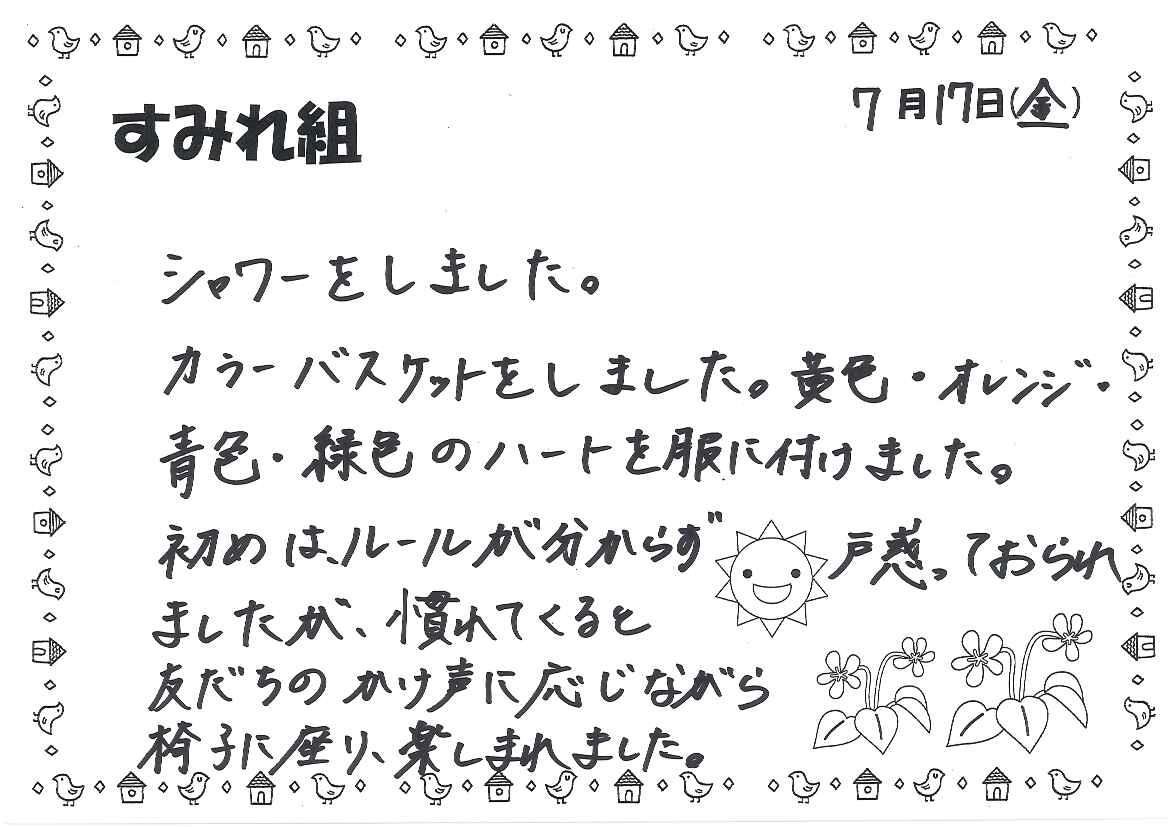 すみれ組
7月17日(金)
シャワーをしました。
カラーバスケットをしました。黄色・オレンジ・
青色・緑色のハートを服に付けました。
初めは、ルールが分からず゛戸惑っておられ
ましたが、慣れてくると
友だちのかけ声に応じながら
椅子に座り、楽しまれました。